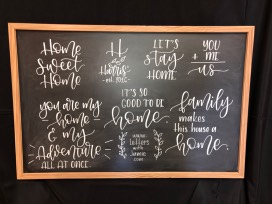 Home
Sweet
Home
H
Harris
est. 2016
LET'S
stay
HOME
YOU
+ ME
us
you are my
home
& my
Adventure
ALL AT ONCE
IT'S SO
GOOD TO BE
home
www.
letters
with
.com
family
makes
this house a
home